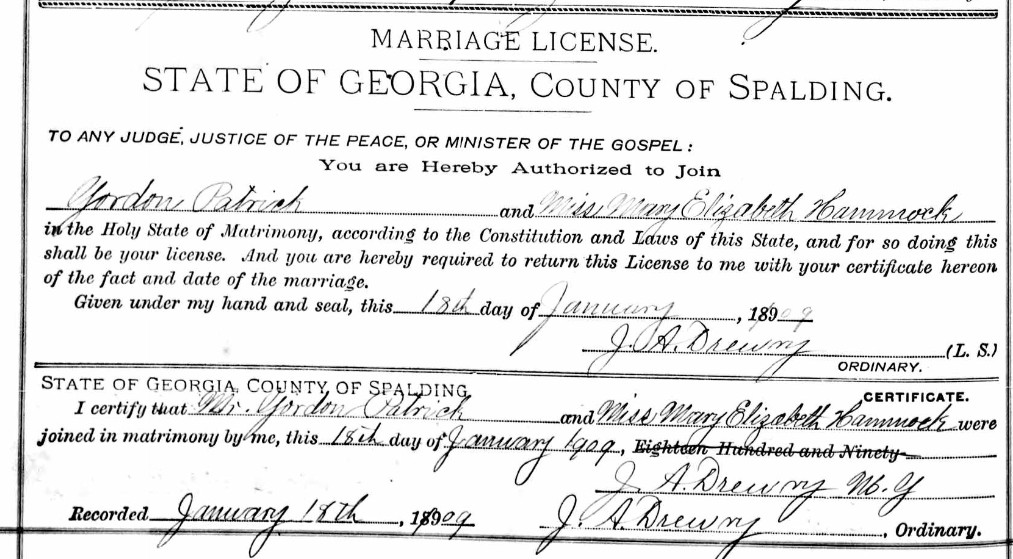 MARRIAGE LICENSE.
STATE OF GEORGIA, COUNTY OF SPALDING.
TO ANY JUDGE, JUSTICE OF THE PEACE, OR MINISTER OF THE GOSPEL:
You are Hereby Authorized to Join
Gordon Patrick and Miss Mary Elizabeth Hammock
in the Holy State of Matrimony, according to the Constitution and Laws of this State, and for so doing this
shall be your license. And you are hereby required to return this License to me with your certificate hereon
of the fact and date of the marriage.
Given under my hand and seal, this 18th day of January, 1909
J. A. Drewry (L. S.)
ORDINARY.
STATE OF GEORGIA, COUNTY OF SPALDING
CERTIFICATE.
I certify that Mr. Gordon Patrick and Miss Mary Elizabeth Hammock were
joined in matrimony by me, this 18th day of January 1909, Eighteen Hundred and Ninety-
J. A. Drewry M. G
Recorded January 18th, 1909 J. A. Drewry, Ordinary.